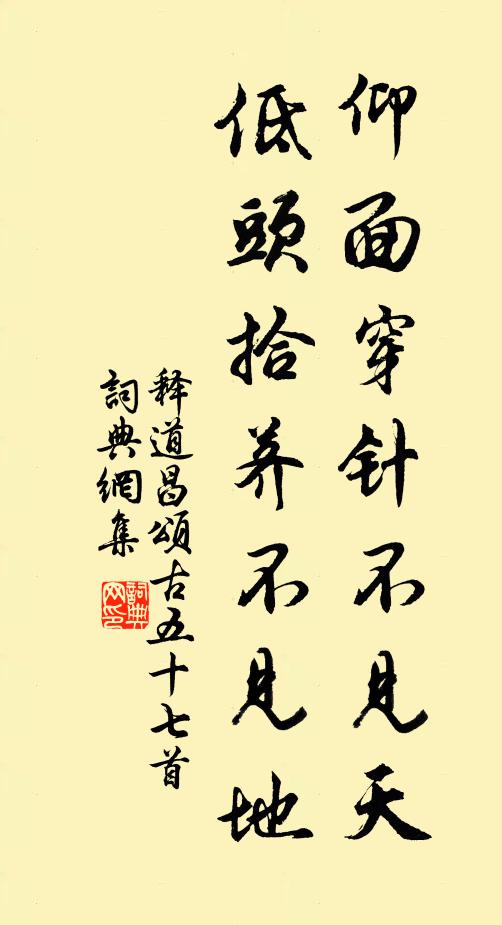 仰面穿针不见天
低頭拾芥不见地
释道昌頌古五十七首
詞典網集
詞典网印